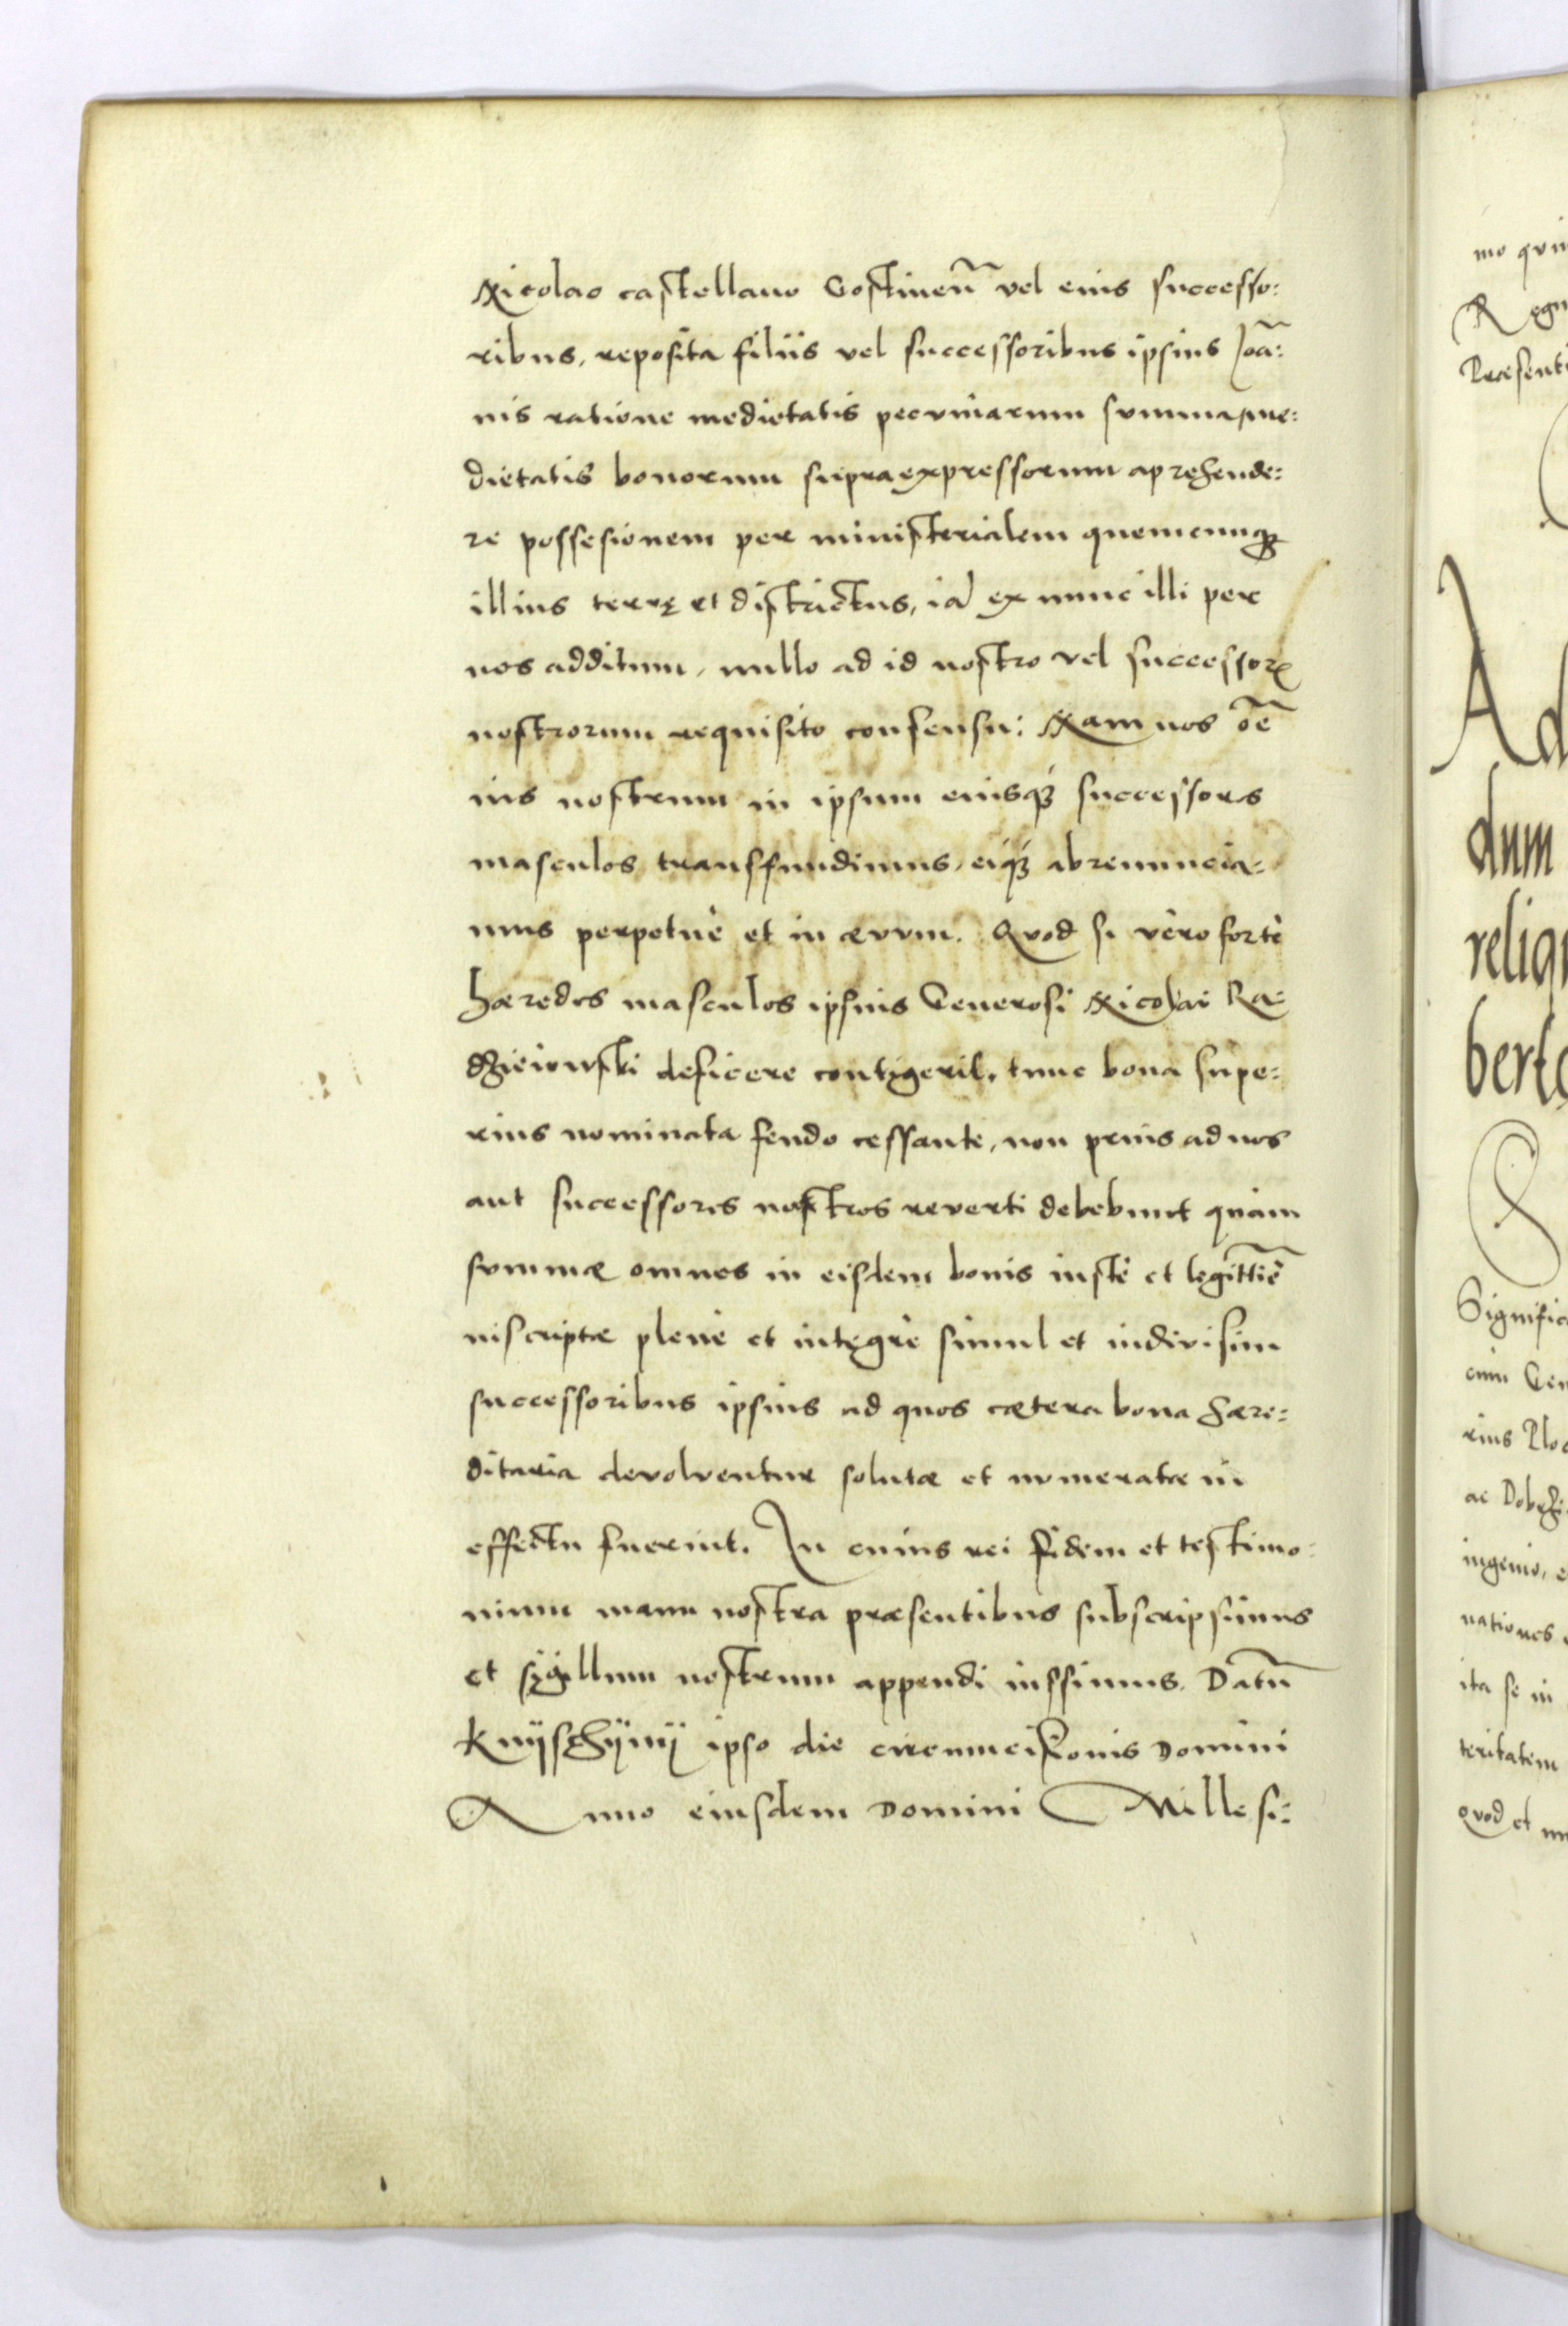 Nicolao castellano Gostinen̄ vel eius successo:
ribus, reposita filiis vel successoribus ipsius Joā:
nis ratione medietatis pecuniarum summa, me:
dietatis bonorum supra expressorum aprehende:
re possesionem per ministerialem quemcunq̨
illius terrę et districtus, iā ex nunc illi per
nos additum, nullo ad id nostro vel successorꝝ
nostrorum requisito consensu: Nam nos oē
ius nostrum in ipsum eiusqꝫ successores
masculos transfundimus, eiqꝫ abrenuncia:
mus perpetuè et in ævum. Quod si vero fortè
hæredes masculos ipsius Generosi Nicolai Ra
dzieiowski deficere contigerit, tunc bona supe:
rius nominata feudo cessante, non prius ad nos
aut successores nostros reverti debebunt quàm
summæ omnes in eisdem bonis iustè et legittiē
inscriptæ plenè et integrè simul et indivisim
successoribus ipsius ad quos cætera bona hære:
ditaria devolventur solutæ et numeratæ in
effectu fuerint. In cuius rei fidem et testimo:
nium manu nostra præsentibus subscripsimus
et sygillum nostrum appendi iussimus. Datū
Knÿschÿnÿ ipso die circumcisionis Domini
Anno eiusdem Domini Millesi:
mo qui
Regn
Præsenti
Ad
dum
reliq
berto
S
Signific
cum Gen
rius Plo
ac Dobrzi
ingenio, e
nationes
ita se in
teritatem
Quod et